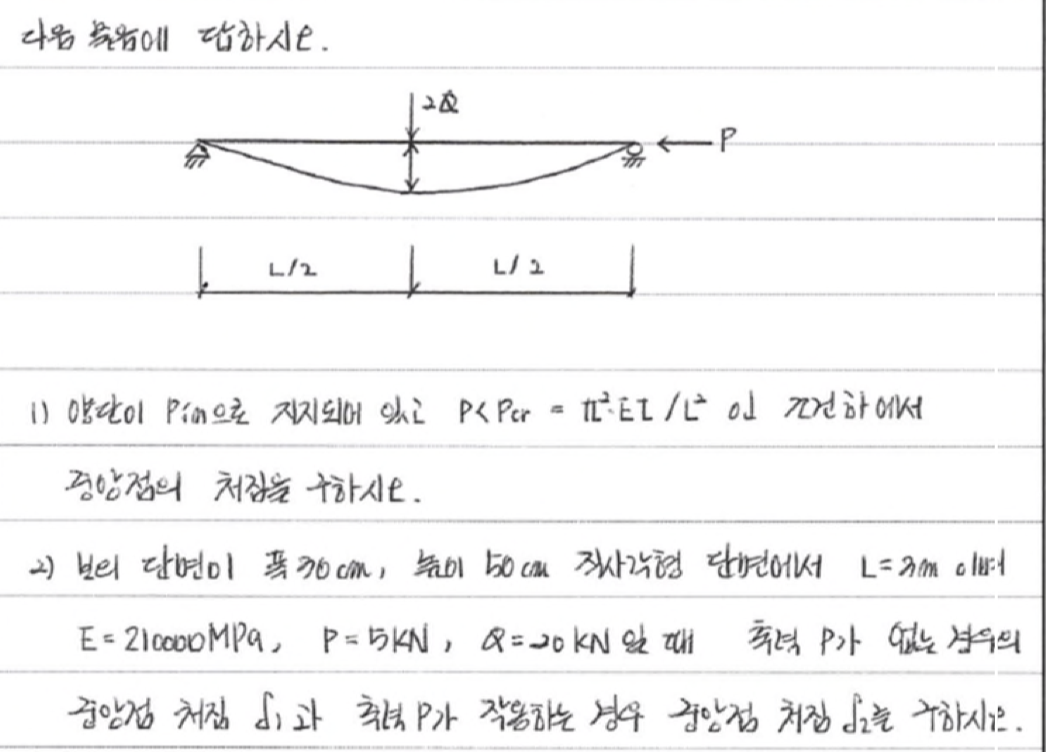 다음 물음에 답하시오.
2Q
P
L/2 L/2
1) 양단이 Pin으로 지지되어 있고 P<Pcr = π²·EI/L² 인 조건하에서
중앙점의 처짐을 구하시오.
2) 보의 단면이 폭 30cm, 높이 50cm 직사각형 단면에서 L=3m 이며
E=210000MPa, P=5KN, Q=20KN 일 때 축력 P가 없는 경우의
중앙점 처짐 δ₁과 축력 P가 작용하는 경우 중앙점 처짐 δ₂를 구하시오.